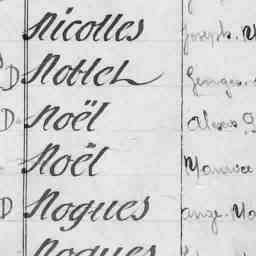 Nicolles Joseph
D Nottet Georges
D Noël Alexis
Noël Maurice
D Nogues Ange
Nogues